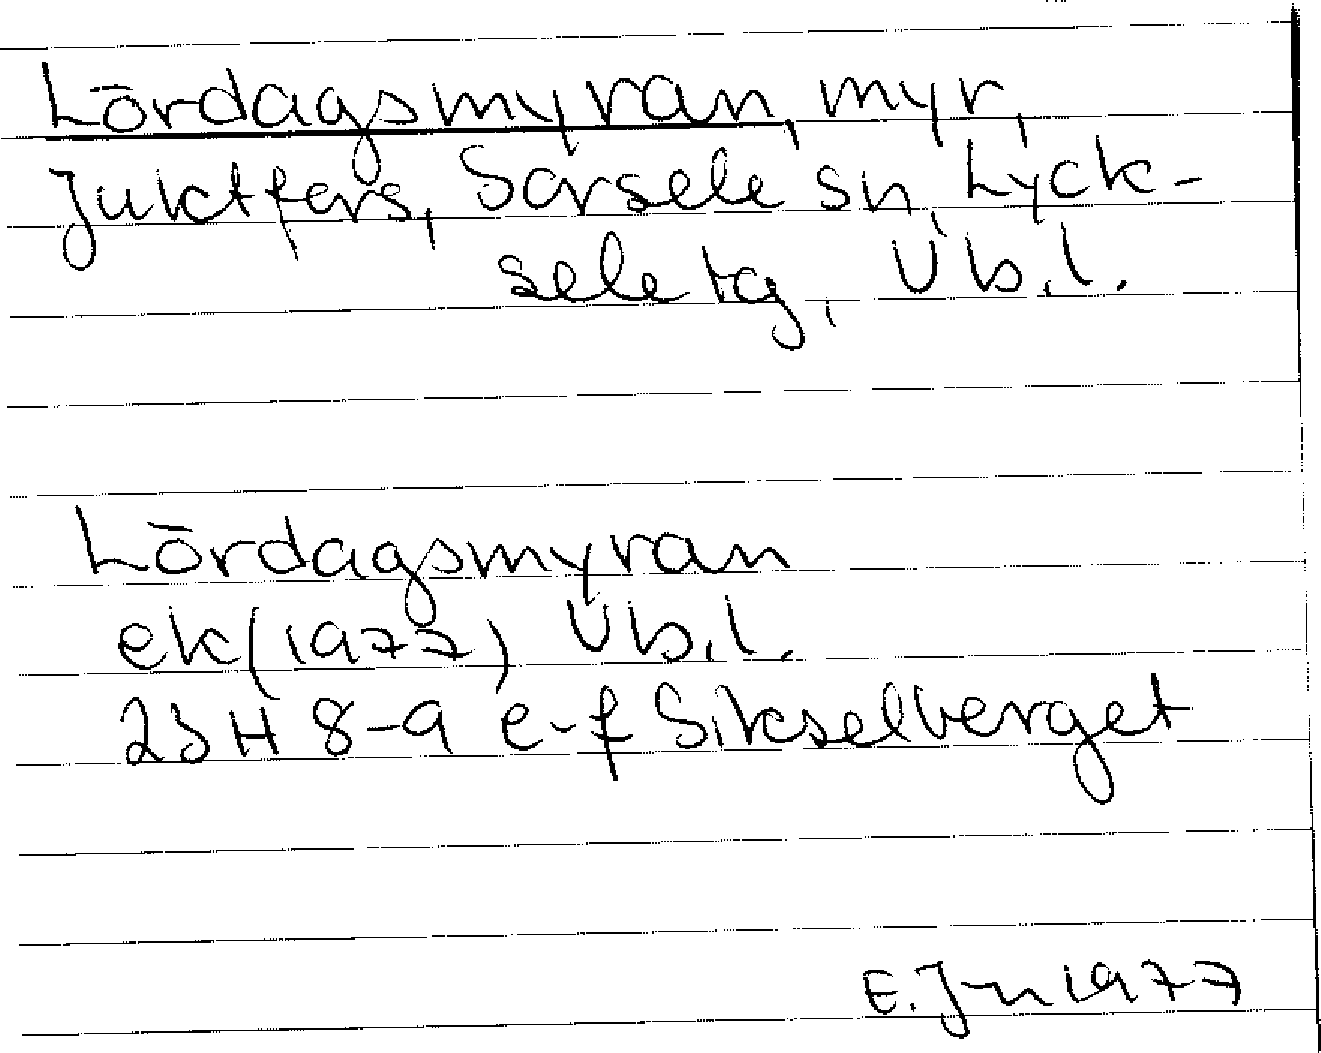 Lördagsmyran, myr,
Juktfors, Sorsele sn, Lyck-
sele tg, Vb.l.
Lördagsmyran
ek (1977) Vb.l.
23H 8-9 e-f Sikselberget
E. Jn 1977